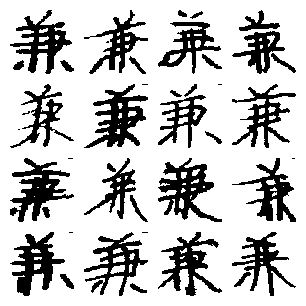 兼兼兼兼
兼兼兼兼
兼兼兼兼
兼兼兼兼